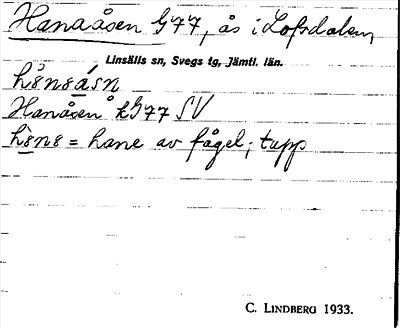 Hanaåsen G77, ås i Lofsdalen,
Linsälls sn, Svegs tg, Jämtl. län.
Hanåsen kG77 SV
= hane av fågel; tupp
C. LINDBERG 1933.